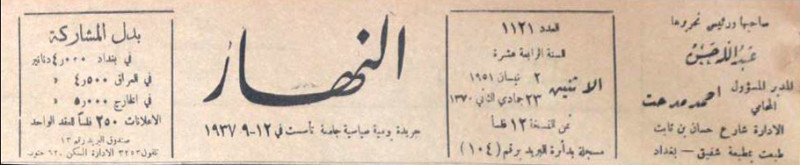 صاحبها ورئيس تحريرها
عبدالله حسين
المدير المسؤول
المحامي
احمد مدحت
الادارة شارع حسان بن ثابت
طبعت بمطبعة شفيق – بغداد
العدد ١١٢١
السنة الرابعة عشرة
الاثنين
٢ نيسان ١٩٥١
٢٣ جمادي الثاني ١٣٧٠
ثمن النسخة ١٢ فلساً
مسجلة بدائرة البريد برقم (١٠٤)
النهار
جريدة يومية سياسية جامعة تأسست في ١٢-٩-١٩٣٧
بدل المشاركة
في بغداد ٤٫٠٠٠ دنانير
في العراق ٤٫٥٠٠ «
في الخارج ٥٫٠٠٠ «
الاعلانات ٢٥٠ فلساً للعقد الواحد
صندوق البريد رقم ١٣
تلفون ٣٢٥٣ الادارة السكن ٦٢٠ جنوب